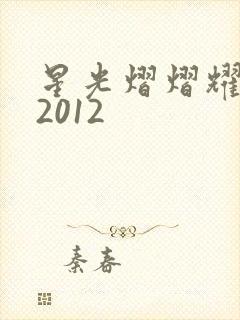 星光熠熠耀
2012
秦春